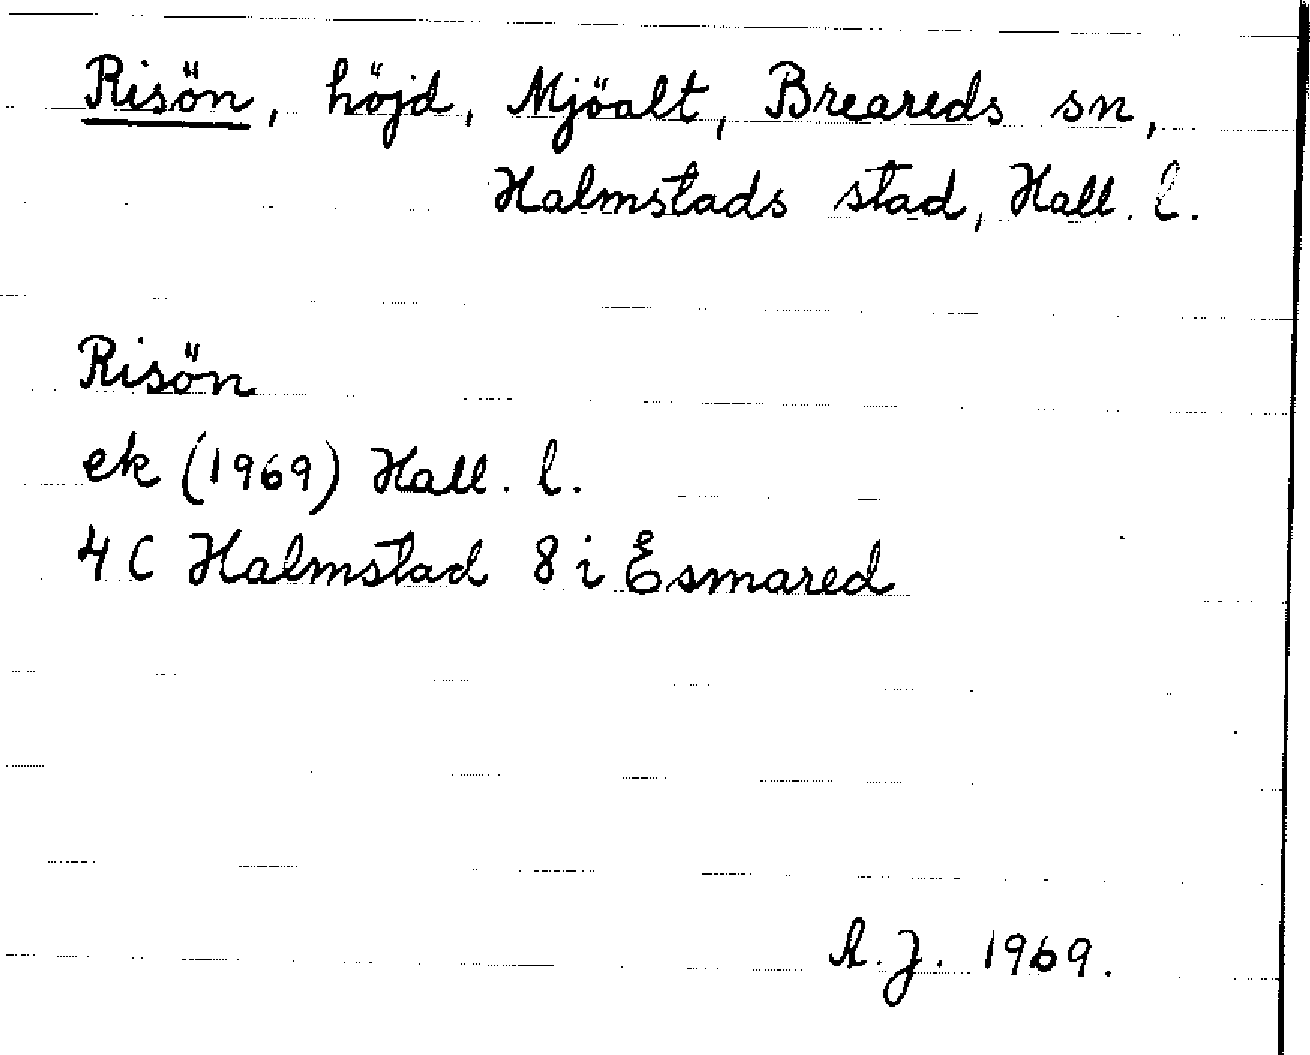 Risön, höjd, Mjöalt, Breareds sn,
Halmstads stad, Hall. l.
Risön
ek (1969) Hall. l.
4 C Halmstad 8 i Esmared
A.J. 1969.